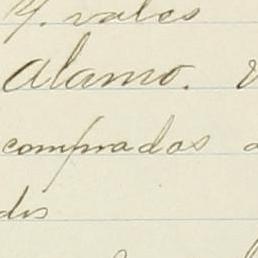 y. vales
Alamo.
comprados
des